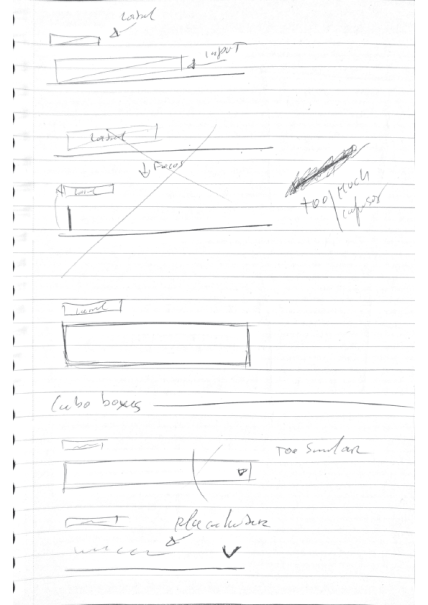 Label
INPUT
Label
Focus
Label
too much
Label
boxes
Too Similar
Placeholder